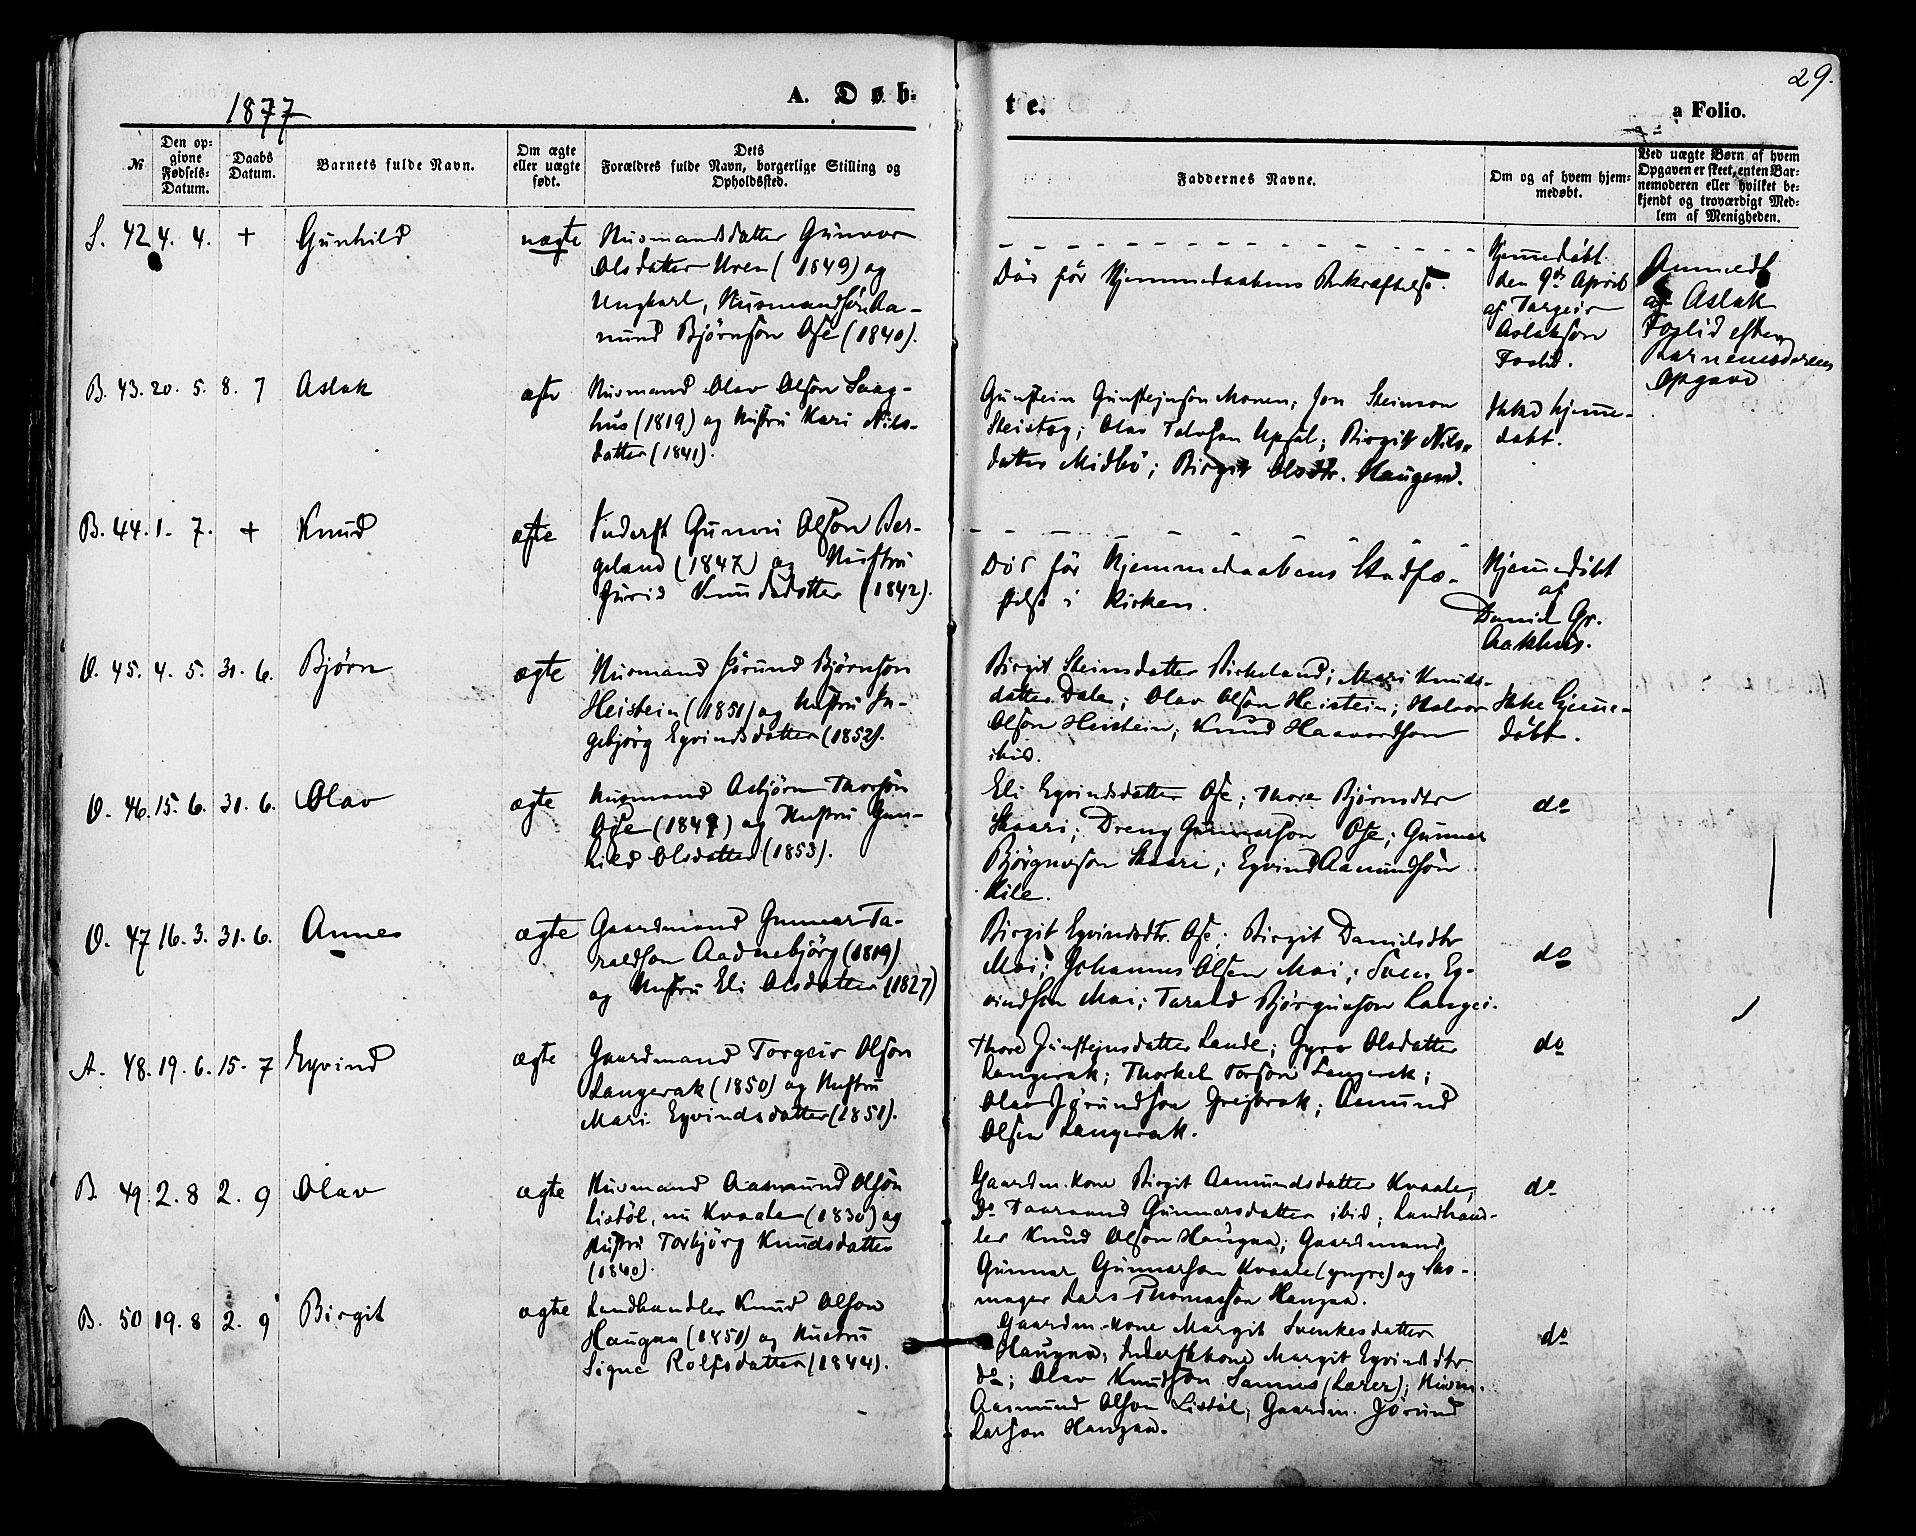 29.
1877
A. Døb-
te.
a Folio.
№
Den op-
givne
Fødsels-
Datum.
Daabs
Datum.
Barnets fulde Navn.
Om ægte
eller uægte
født.
Dets
Forældres fulde Navn, borgerlige Stilling og
Opholdssted.
Faddernes Navne.
Om og af hvem hjem-
medøbt.
Ved uægte Børn af hvem
Opgaven er skeet, enten Bar-
nemoderen eller hvilket be-
kjendt og troværdigt Med-
lem af Menigheden.
S. 42 4. 4. + Gunhild uægte
Husmandsdatter Gunvor
Olsdatter Uren (1849) og
Ungkarl, Husmandssøn Aa-
mund Bjørnson Ose (1840).
Død før Hjemmedaabens Bekræftelse.
Hjemedøbt
den 9de April
af Targeir
Aslakson
Foslid.
Anmeldt
af Aslak
Foslid efter
Barnemoderens
Opgave
B. 43. 20. 5. 8. 7 Aslak ægte
Husmand Olav Olson Laag-
hus (1819) og Hustru Kari Nils-
datter (1841).
Gunstein Gunstejnson Monen; Jon Steinson
; Olav Upsal; Birgit Nils-
datter Midbö; Birgit Olsdtr. Haugen.
Ikke hjeme-
døbt.
B. 44. 1. 7. + Knud ægte
Inderst Gunvu Olson Ber-
geland (1847) og Hustru
Gurid Knudsdatter (1842).
Død før Hjemmedaabens Stadfæ-
stelse i Kirken.
Hjemedøbt
af
Daniel Gr.
Aakhus.
O. 45. 4. 5. 31. 6. Bjørn ægte
Husmand Jörund Bjørnson
Heistein (1851) og Hustru In-
gebjörg Eyvindsdatter (1852).
Birgit Steinsdatter Birkeland; Mari Knuds-
datter Dale; Olav Olson Heistein; Halvor
Olson Heistein; Knud Haavordson
ibid.
Ikke hjeme-
døbt.
O. 46. 15. 6. 31. 6. Olav ægte
Husmand Asbjørn Thorson
Ose (1849) og Hustru Gun-
hild Olsdatter (1853).
Eli Eyvindsdatter Ose; Thore Bjørnsdtr
Skaari; Dreng Gunnarson Ose; Gunnar
Björgulvson Skaari; Eyvind Aamundson
Kile.
do
O. 47 16. 3. 31. 6. Annes ægte
Gaardmand Gunnar Ta-
raldson Aadnebjörg (1819)
og Hustru Eli Olsdatter (1827)
Birgit Eyvindsdtr. Ose; Birgit Danielsdtr
Moi; Johannes Olsen Moi; Sven Ey-
vindson Moi; Tarald Bjørgulson Langei.
do
A. 48. 19. 6. 15. 7 Eyvind ægte
Gaardmand Torgeir Olson
Langerak (1850) og Hustru
Mari Eyvindsdatter (1851).
Thore Gunstejnsdatter Lande; Gyro Olsdatter
Langerak; Thorkel Torson Langerak;
Olav Jørundson Frejsrak; Aamund
Olsen Langerak.
do
B. 49. 2. 8 2. 9 Olav ægte
Husmand Aasmund Olson
Listöl, nu Kvaale (1830) og
Hustru Torbjörg Knudsdatter
(1840).
Gaardm. Kone Birgit Aamundsdatter Kvaale,
Do Taaraand Gunnarsdatter ibid; Landhand-
ler Knud Olson Haugaa; Gaardmand
Gunnar Gunnarson Kvaale (yngre) og Sko-
mager Lars Thomasson Haugaa.
do
B. 50 19. 8 2. 9 Birgit ægte
Landhandler Knud Olson
Haugaa (1851) og Hustru
Signe Rolfsdatter (1844).
Gaardm.-Kone Margit Svenkesdatter
Haugaa; Inderstkone Margit Eyvindsdtr
do; Olav Knudson Sannes (Lærer); Husm.
Aasmund Olson Listöl; Gaardm. Jörund
Larson Haugaa.
do